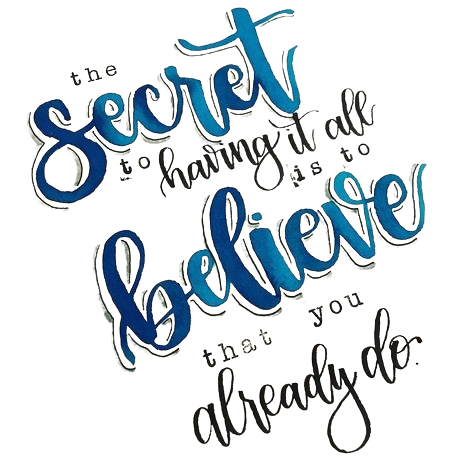 the
secret
to having it all
is to
believe
that you
already do.